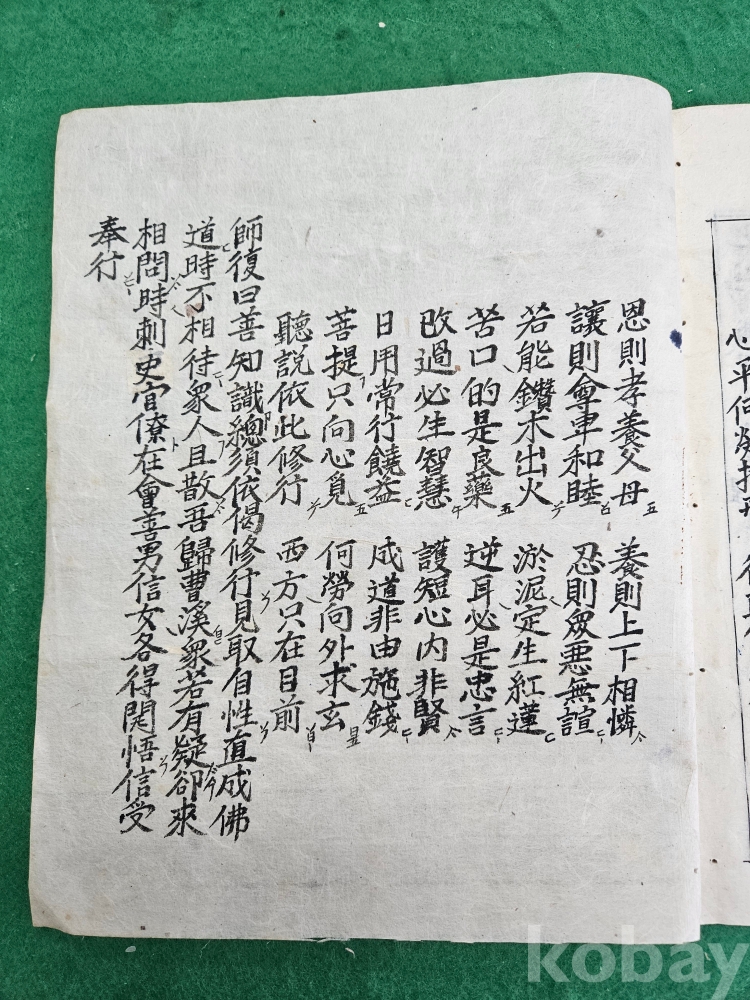 心平何勞持
恩則孝養父母 養則上下相憐
讓則尊卑和睦 忍則眾悪無諠
若能鑽木出火 淤泥定生紅蓮
苦口的是良藥 逆耳必是忠言
改過必生智慧 護短心内非賢
日用常行饒益 成道非由施錢
菩提只向心覓 何勞向外求玄
聽說依此修行 西方只在目前
師復曰善知識總須依偈修行見取自性直成佛
道時不相待衆人且散吾歸曹溪衆若有疑卻來
相問時刺史官僚在會善男信女各得開悟信受
奉行
kobay